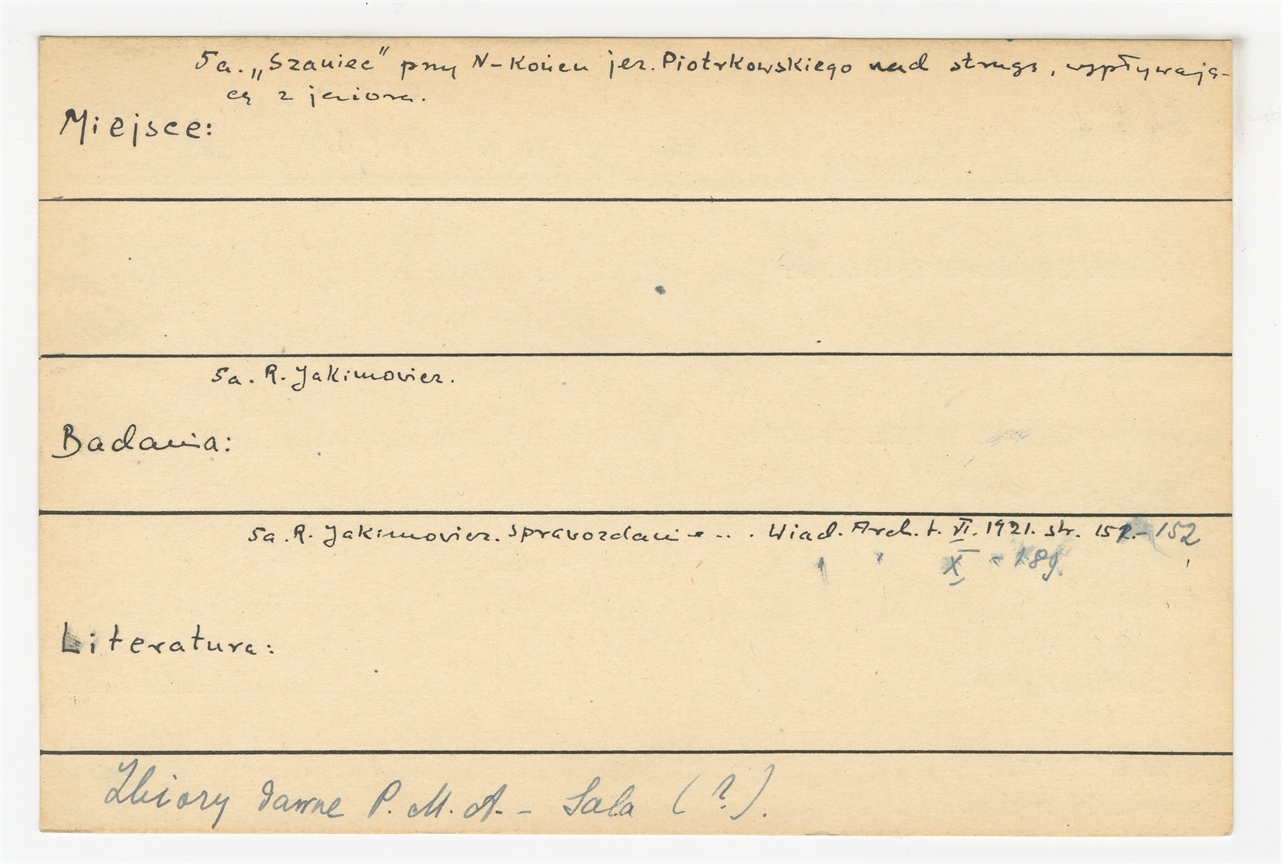 5a. „Szaniec" przy N-Końcu jez. Piotrkowskiego nad strugą, wypływają-
cą z jeziora.
Miejsce:
5a. R. Jakimowicz.
Badania:
5a. R. Jakimowicz. Sprawozdanie ... Wiad. Arch. t. VI. 1921. str. 151.-152
X - 189.
Literatura:
Zbiory dawne P. M. A. - Sala (?).